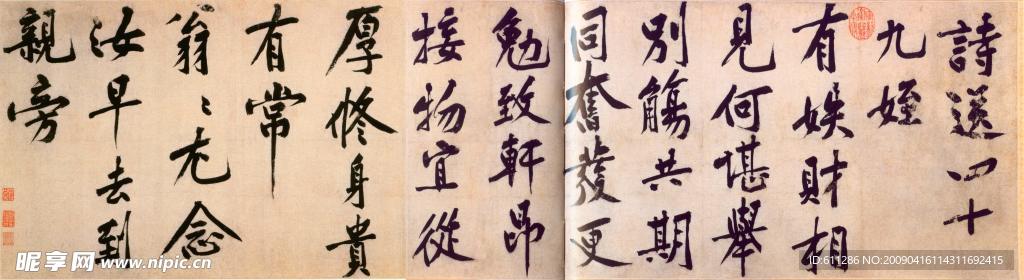 詩送四十
九姪
有娛財相
見何堪舉
別觴共期
同奮發更
勉致軒昂
接物宜從
厚修身貴
有常
翁〻尤念
汝早去到
親旁
昵享网 www.nipic.cn
ID:611286 NO:20090416114311692415